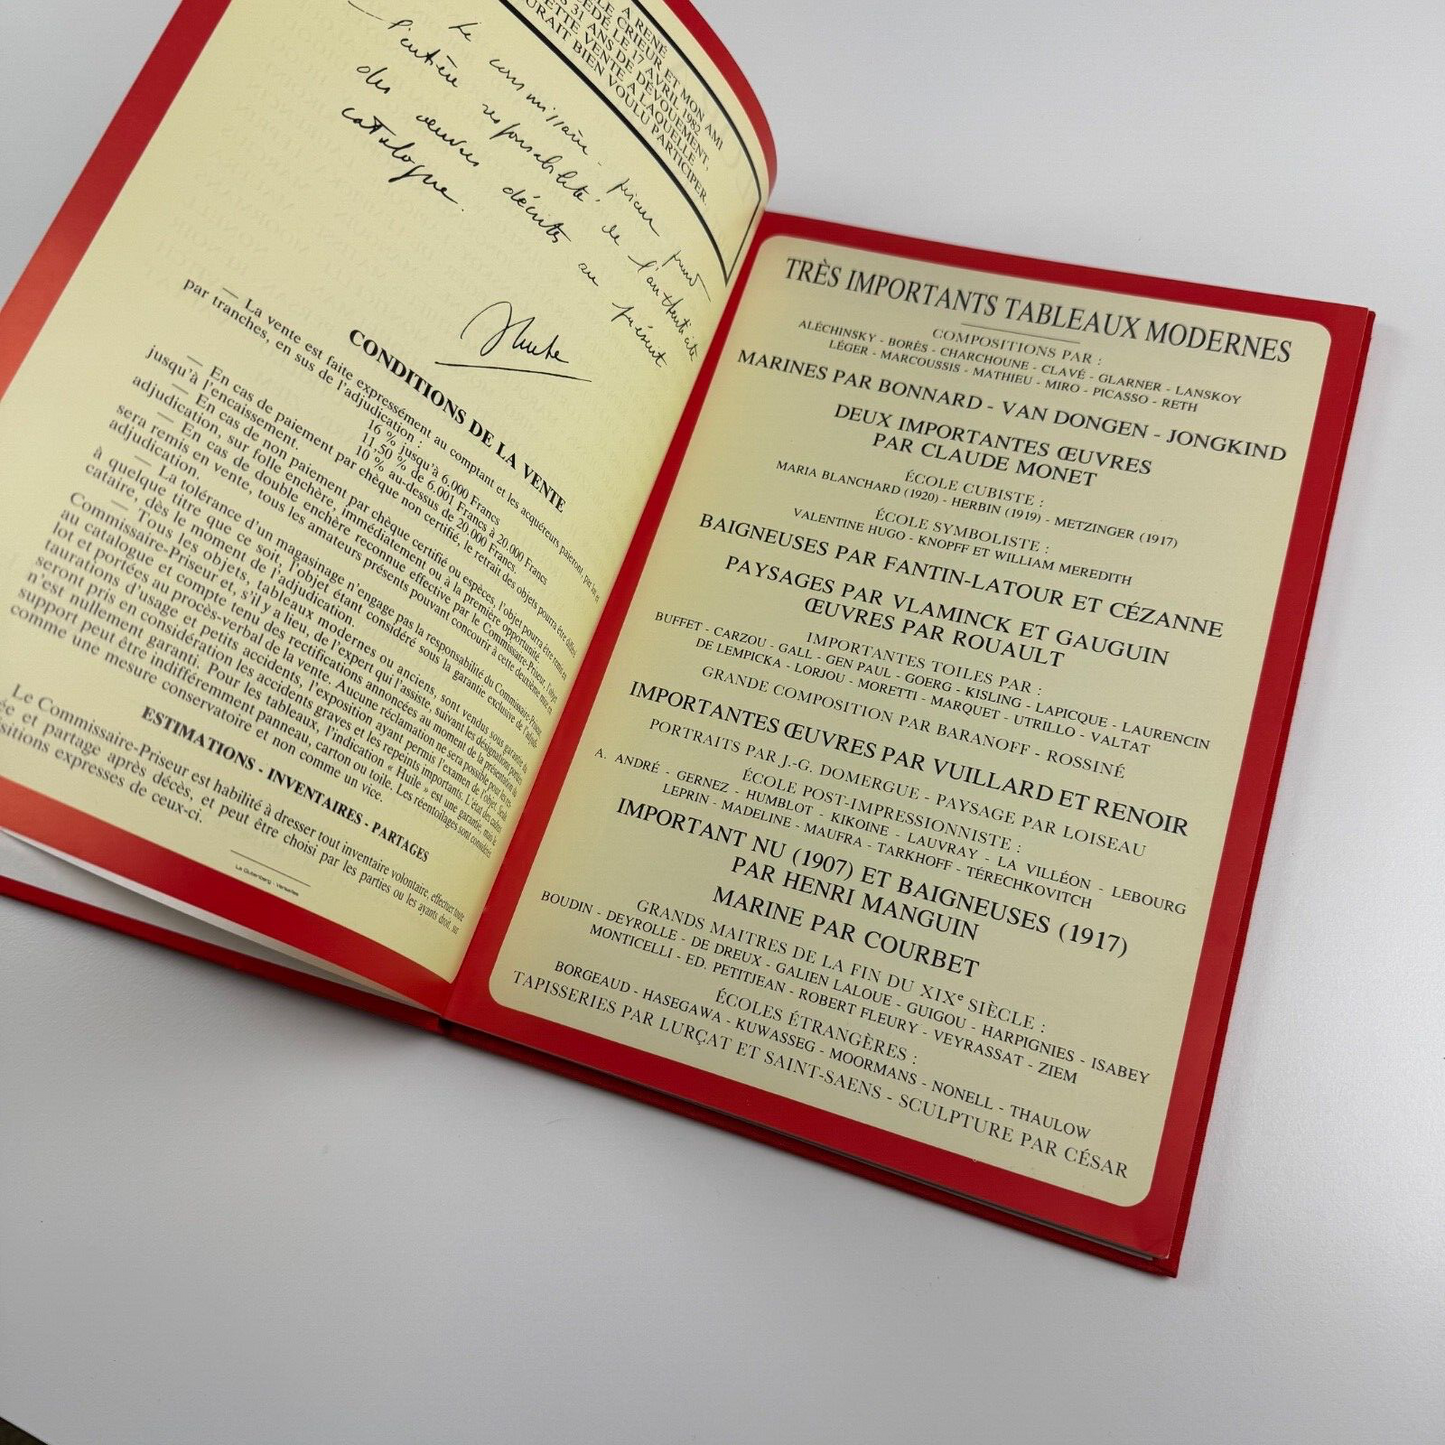 A RENÉ
LE CRIEUR ET MON AMI
DÉCÉDÉ LE 17 AVRIL 1982
31 ANS DE DÉVOUEMENT,
CETTE VENTE A LAQUELLE
AURAIT BIEN VOULU PARTICIPER.
Le commissaire-priseur prend
l'entière responsabilité de l'authenticité
des œuvres décrites au présent
catalogue.
CONDITIONS DE LA VENTE
— La vente est faite expressément au comptant et les acquéreurs paieront,
par tranches, en sus de l'adjudication :
16 % jusqu'à 6.000 Francs
11,50 % de 6.001 Francs à 20.000 Francs
10 % au-dessus de 20.000 Francs.
— En cas de paiement par chèque non certifié, le retrait des objets pourra être différé
jusqu'à l'encaissement.
— En cas de non paiement par chèque certifié ou espèces, l'objet pourra être remis en
adjudication, sur folle enchère, immédiatement ou à la première opportunité.
— En cas de double enchère reconnue effective par le Commissaire-Priseur, l'objet
sera remis en vente, tous les amateurs présents pouvant concourir à cette deuxième mise en
adjudication.
— La tolérance d'un magasinage n'engage pas la responsabilité du Commissaire-Priseur
à quelque titre que ce soit, l'objet étant considéré sous la garantie exclusive de l'adjudi-
cataire, dès le moment de l'adjudication.
— Tous les objets, tableaux modernes ou anciens, sont vendus sous garantie, du
Commissaire-Priseur et, s'il y a lieu, de l'expert qui l'assiste, suivant les désignations portées
au catalogue et compte tenu des rectifications annoncées au moment de la présentation du
lot et portées au procès-verbal de la vente. Aucune réclamation ne sera possible pour les res-
taurations d'usage et petits accidents, l'exposition ayant permis l'examen de l'objet. Seuls
seront pris en considération les accidents graves et les repeints importants. L'état des cadres
n'est nullement garanti. Pour les tableaux, l'indication « Huile » est une garantie, mais le
support peut être indifféremment panneau, carton ou toile. Les réentoilages sont considérés
comme une mesure conservatoire et non comme un vice.
ESTIMATIONS - INVENTAIRES - PARTAGES
Le Commissaire-Priseur est habilité à dresser tout inventaire volontaire, effectuer toute
et partage après décès, et peut être choisi par les parties ou les ayants droit, sur
expresses de ceux-ci.
La Gutenberg - Versailles
TRÈS IMPORTANTS TABLEAUX MODERNES
COMPOSITIONS PAR :
ALÉCHINSKY - BORÈS - CHARCHOUNE - CLAVÉ - GLARNER - LANSKOY
LÉGER - MARCOUSSIS - MATHIEU - MIRO - PICASSO - RETH
MARINES PAR BONNARD - VAN DONGEN - JONGKIND
DEUX IMPORTANTES ŒUVRES
PAR CLAUDE MONET
ÉCOLE CUBISTE :
MARIA BLANCHARD (1920) - HERBIN (1919) - METZINGER (1917)
ÉCOLE SYMBOLISTE :
VALENTINE HUGO - KNOPFF ET WILLIAM MEREDITH
BAIGNEUSES PAR FANTIN-LATOUR ET CÉZANNE
PAYSAGES PAR VLAMINCK ET GAUGUIN
ŒUVRES PAR ROUAULT
IMPORTANTES TOILES PAR :
BUFFET - CARZOU - GALL - GEN PAUL - GOERG - KISLING - LAPICQUE - LAURENCIN
DE LEMPICKA - LORJOU - MORETTI - MARQUET - UTRILLO - VALTAT
GRANDE COMPOSITION PAR BARANOFF - ROSSINÉ
IMPORTANTES ŒUVRES PAR VUILLARD ET RENOIR
PORTRAITS PAR J.-G. DOMERGUE - PAYSAGE PAR LOISEAU
ÉCOLE POST-IMPRESSIONNISTE :
A. ANDRÉ - GERNEZ - HUMBLOT - KIKOINE - LAUVRAY - LA VILLÉON - LEBOURG
LEPRIN - MADELINE - MAUFRA - TARKHOFF - TÉRECHKOVITCH
IMPORTANT NU (1907) ET BAIGNEUSES (1917)
PAR HENRI MANGUIN
MARINE PAR COURBET
GRANDS MAITRES DE LA FIN DU XIXᵉ SIÈCLE :
BOUDIN - DEYROLLE - DE DREUX - GALIEN LALOUE - GUIGOU - HARPIGNIES - ISABEY
MONTICELLI - ED. PETITJEAN - ROBERT FLEURY - VEYRASSAT - ZIEM
ÉCOLES ÉTRANGÈRES :
BORGEAUD - HASEGAWA - KUWASSEG - MOORMANS - NONELL - THAULOW
TAPISSERIES PAR LURÇAT ET SAINT-SAENS - SCULPTURE PAR CÉSAR